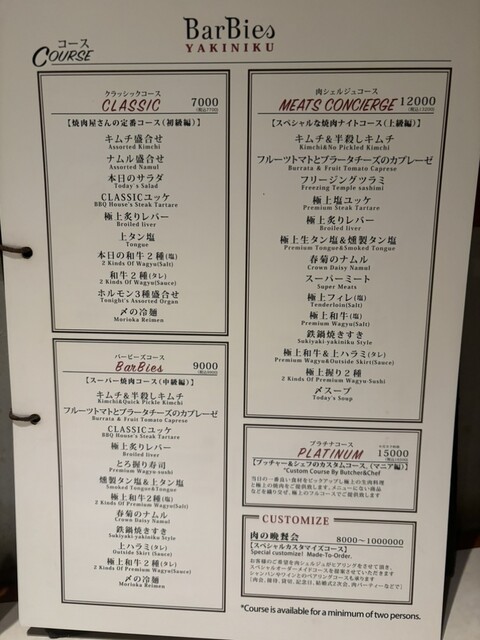 コース
COURSE
BarBies
YAKINIKU
クラシックコース
CLASSIC 7000
(税込7700)
【焼肉屋さんの定番コース(初級編)】
キムチ盛合せ
Assorted Kimchi
ナムル盛合せ
Assorted Namul
本日のサラダ
Today's Salad
CLASSICユッケ
BBQ House's Steak Tartare
極上炙りレバー
Broiled liver
上タン塩
Tongue
本日の和牛2種(塩)
2 Kinds Of Wagyu(Salt)
和牛2種(タレ)
2 Kinds Of Wagyu(Sauce)
ホルモン3種盛合せ
Tonight's Assorted Organ
〆の冷麺
Morioka Reimen
バービーズコース
BarBies 9000
(税込9900)
【スーパー焼肉コース(中級編)】
キムチ&半殺しキムチ
Kimchi&Quick Pickle Kimchi
フルーツトマトとブラータチーズのカプレーゼ
Burrata & Fruit Tomato Caprese
CLASSICユッケ
BBQ House's Steak Tartare
極上炙りレバー
Broiled liver
とろ握り寿司
Premium Wagyu-sushi
燻製タン塩&上タン塩
Smoked Tongue&Tongue
極上和牛2種(塩)
2 Kinds Of Premium Wagyu(Salt)
春菊のナムル
Crown Daisy Namul
鉄鍋焼きすき
Sukiyaki-yakiniku Style
上ハラミ(タレ)
Outside Skirt (Sauce)
極上和牛2種(タレ)
2 Kinds Of Premium Wagyu(Sauce)
〆の冷麺
Morioka Reimen
肉シェルジュコース
MEATS CONCIERGE 12000
(税込13200)
【スペシャルな焼肉ナイトコース(上級編)】
キムチ&半殺しキムチ
Kimchi&No Pickled Kimchi
フルーツトマトとブラータチーズのカプレーゼ
Burrata & Fruit Tomato Caprese
フリージングツラミ
Freezing Temple sashimi
極上塩ユッケ
Premium Steak Tartare
極上炙りレバー
Broiled liver
極上生タン塩&燻製タン塩
Premium Tongue&Smoked Tongue
春菊のナムル
Crown Daisy Namul
スーパーミート
Super Meats
極上フィレ(塩)
Tenderloin(Salt)
極上和牛(塩)
Premium Wagyu(Salt)
鉄鍋焼きすき
Sukiyaki-yakiniku Style
極上和牛&上ハラミ(タレ)
Premium Wagyu&Outside Skirt(Sauce)
極上握り2種
2 Kinds Of Premium Wagyu-Sushi
〆スープ
Today's Soup
プラチナコース
PLATINUM 15000
【ブッチャー&シェフのカスタムコース、(マニア編)】
"Custom Course By Butcher&Chef
当日の一番良い食材をピックアップし極上の生肉料理
と極上の焼肉をご提供致します。メニューにない商品
などを織り交ぜ、極上のフルコースでご提供致します
CUSTOMIZE
肉の晩餐会 8000〜1000000
【スペシャルカスタマイズコース】
Special customize! Made-To-Order.
お客様のご希望を肉シェルジュがヒアリングをさせて頂き、
スペシャルオーダーメイドコースを提案させていただきます
シャンパンやワインとのペアリングコースも承ります
(肉会、接待、貸切、記念日、結婚式2次会、肉パーティーなどで)
*Course is available for a minimum of two persons.